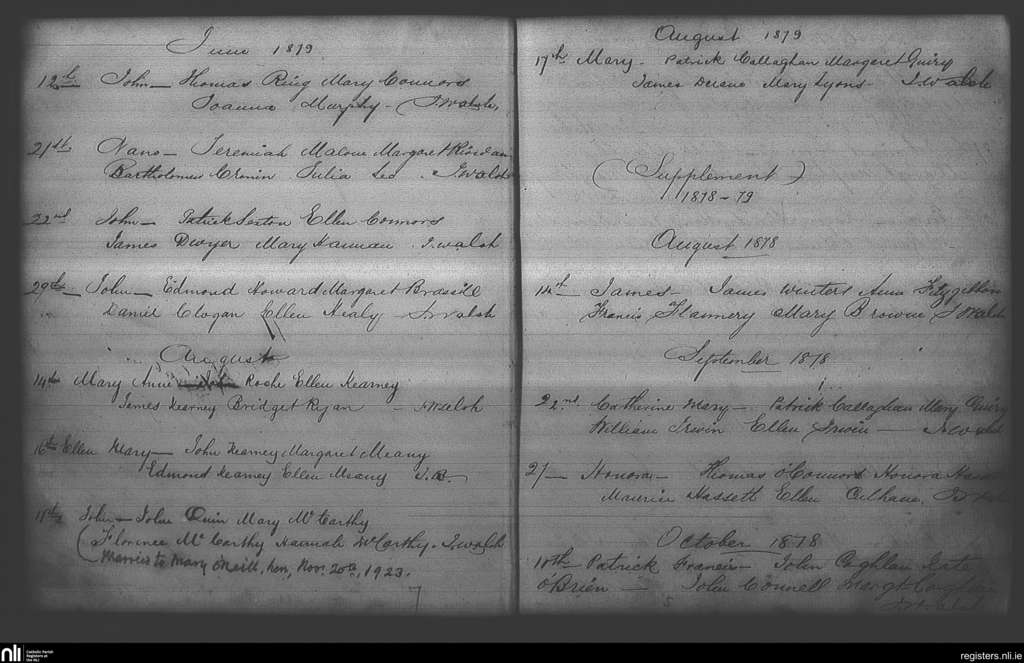 June 1879
12th John — Thomas Ring Mary Connors
Joanna Murphy — J. Walsh,
21st Nano — Jeremiah Malone Margaret Riordan
Bartholomew Cronin Julia Leo. J. Walsh
22nd John — Patrick Sexton Ellen Connors
James Dwyer Mary Hannan. J. Walsh
29th — John — Edmond Howard Margaret Brassill
Daniel Clogan Ellen Healy — J. Walsh
August
14th Mary Anne Roche Ellen Kearney
James Kearney Bridget Ryan — J. Walsh
16th Ellen Mary — John Kearney Margaret Meany
Edmond Kearney Ellen Meany
John — John Quin Mary McCarthy
(Florence McCarthy Hannah McCarthy. J. Walsh
Married to Mary O'Neill, Nov. 20th, 1923.
August 1879
17th Mary — Patrick Callaghan Margaret Quiry
James Mary Lyons J. Walsh
(Supplement)
1878-79
August 1878
14th — James — James Winters Ann Fitzgibbon
Francis Flannery Mary Browne J. Walsh
September 1878
22nd Catherine Mary — Patrick Callaghan Mary Quiry
William Irwin Ellen Irwin — J. Walsh
27 — Honora — Thomas O'Connors Honora
Maurice Hassett Ellen Culhane,
October 1878
10th Patrick Francis — John Coghlan Kate
O'Brien — John Connell Margt Coghlan
nli
Catholic Parish
Registers at
the NLI
registers.nli.ie